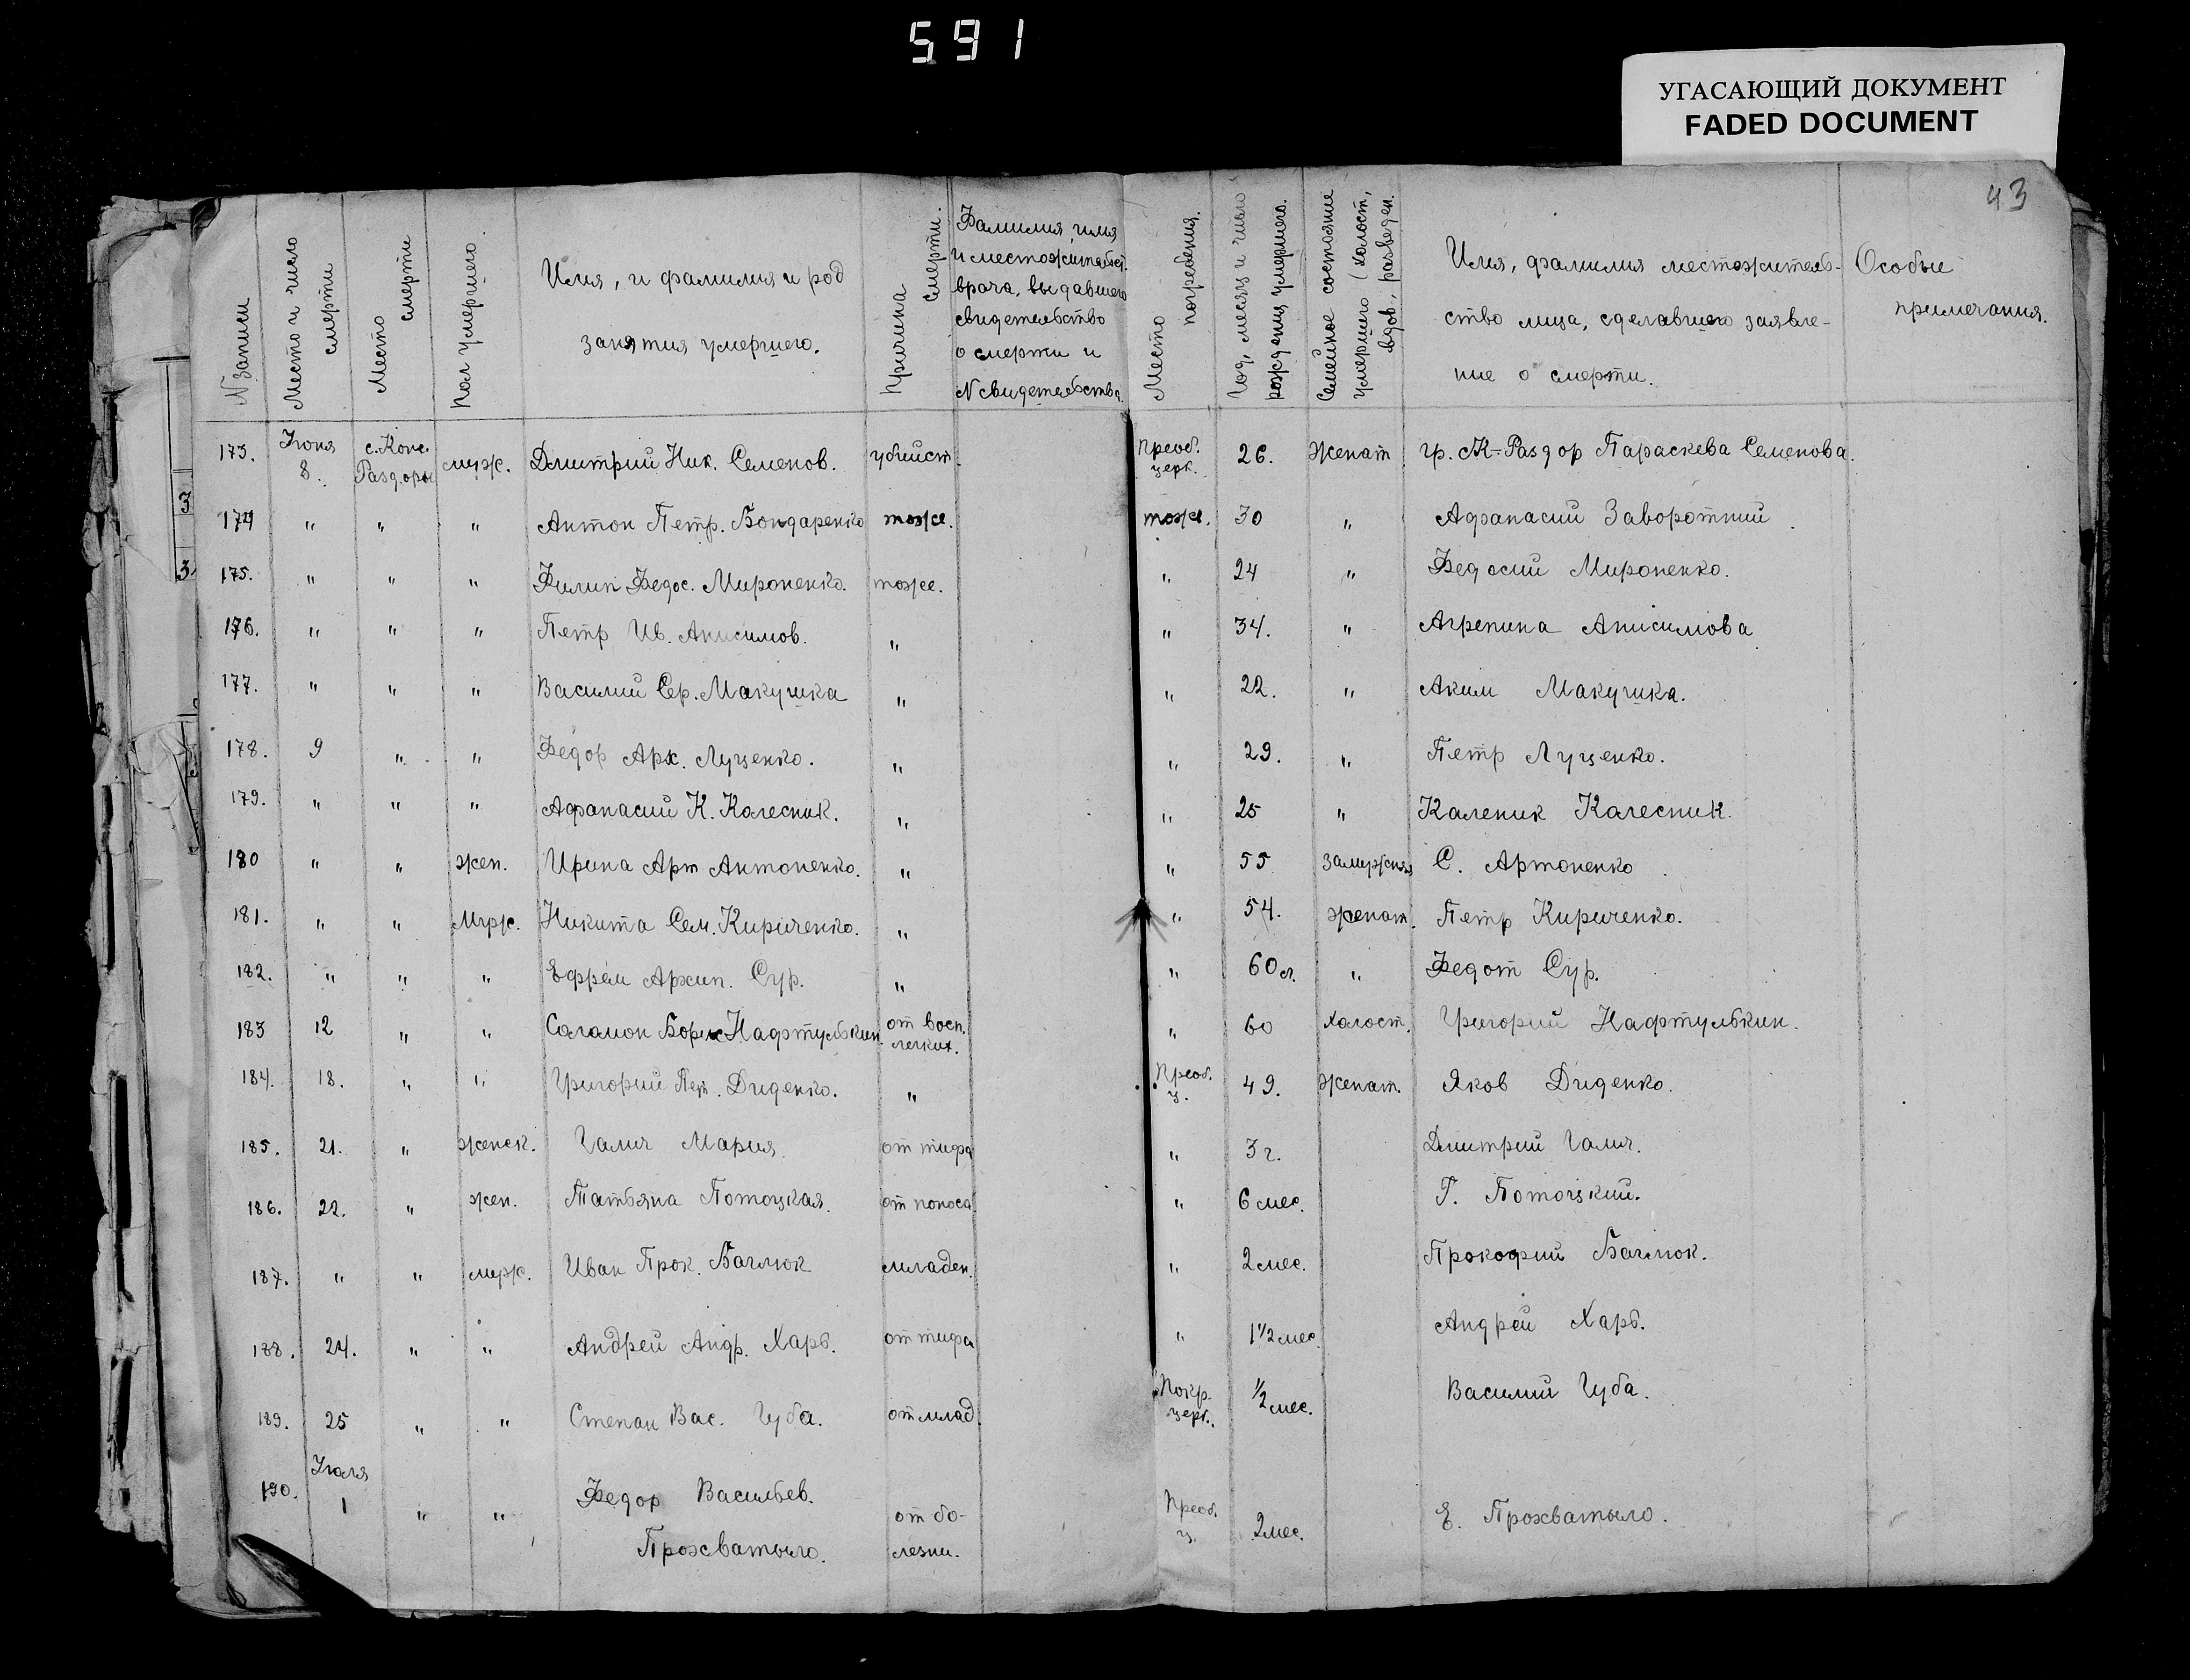 591
УГАСАЮЩИЙ ДОКУМЕНТ
FADED DOCUMENT
43
N записи
Место и число смерти
Место смерти
Пол умершего
Имя, и фамилия и род занятия умершего.
Причина смерти.
Фамилия, имя и местожительст. врача, выдавшего свидетельство о смерти и N свидетельства.
Место погребения.
Год, месяц и число рождения умершего.
Семейное состояние умершего (холост, вдов, разведен.
Имя, фамилия местожительство лица, сделавшего заявление о смерти.
Особые примечания.
173. Июня 8. с. Конс. Раздоры муж. Дмитрий Ник. Семенов. убийст. Преоб. церк. 26. Женат гр. с К-Раздор Параскева Семенова.
174 " " " Антон Петр. Бондаренко тоже. тоже. 30 " Афанасий Заворотний.
175. " " " Филип Федос. Мироненко. тоже. " 24 " Федосий Мироненко.
176. " " " Петр Ив. Анисимов. " " 34. " Агрепина Анисимова
177. " " " Василий Сер. Макушка " " 22. " Аким Макушка.
178. 9 " " Федор Арх. Луценко. " " 29. " Петр Луценко.
179. " " " Афанасий К. Калесник. " " 25 " Каленик Калесник.
180 " " жен. Ирина Арт Антоненко. " " 55 замужняя С. Артоненко.
181. " " Муж. Никита Сем. Кириченко. " " 54. женат. Петр Кириченко.
182. " " " Ефрем Архип. Сур. " " 60 л. " Федот Сур.
183 12 " " Саламон Борис Нафтулькин. от восп. легких. " 60 холост. Григорий Нафтулькин.
184. 18. " " Григорий Пет. Диденко. " Преоб. ц. 49. Женат. Яков Диденко.
185. 21. " женск. Галич Мария. от тифа " 3 г. Дмитрий Галич.
186. 22. " жен. Татьяна Потоцкая. от поноса " 6 мес. Г. Потоцкий.
187. " " муж. Иван Прок. Баглюк младен. " 2 мес. Прокофий Баглюк.
188. 24. " " Андрей Андр. Харб. от тифа " 1 1/2 мес. Андрей Харб.
189. 25 " " Степан Вас. Губа. от млад. Покр. церк. 1/2 мес. Василий Губа.
190. Июля 1 " " Федор Васильев. Прохватыло. от болезни. Преоб. ц. 2 мес. Е. Прохватыло.